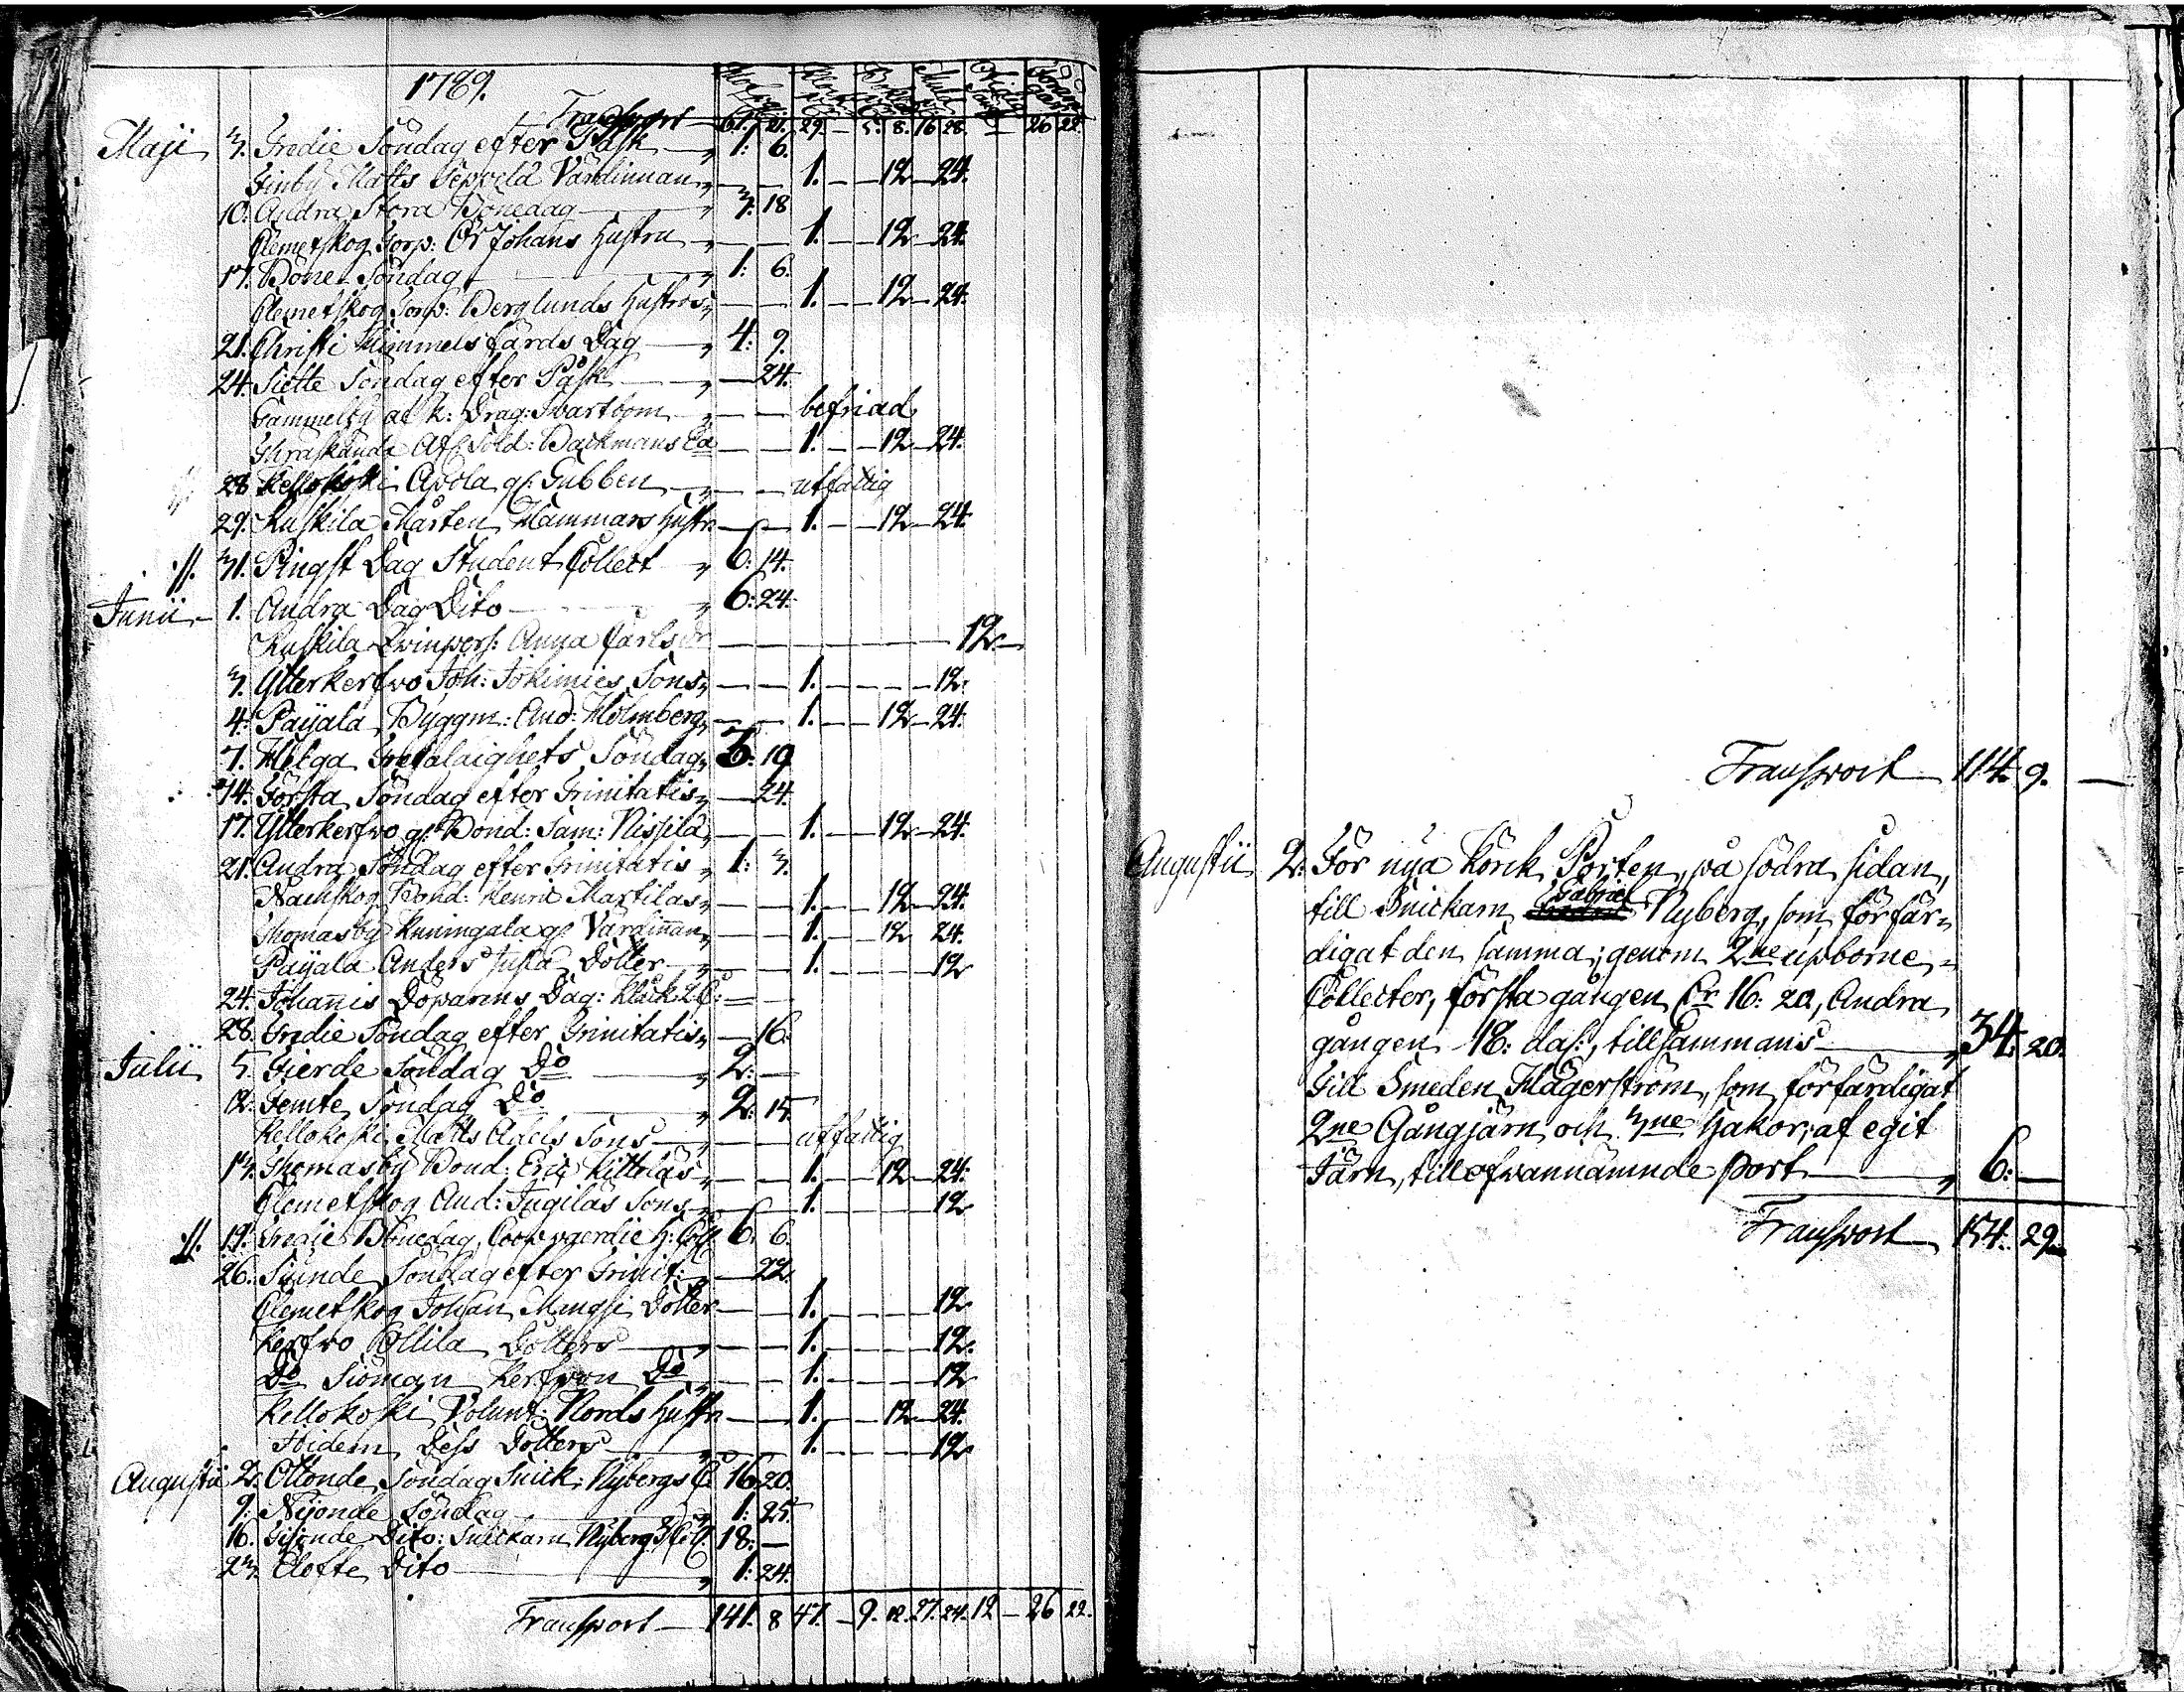 1789.
Transport 61. 21. 29. — 5: 8. 16 28. — 26 22.
Maji 3. Tredie Söndag efter Påsk „ 1: 6.
Träby Matts Seppelä Värdinnan „ — — 1. — — 12 — 24.
10. Andra Stora Bönedag „ 3: 18
Clemetskog Torp: Johans Hustru „ — — 1. — — 12 — 24.
17. Böne Söndag „ 1: 6.
Clemetskog Torp: Berglunds Hustros „ — — 1. — — 12 — 24.
21. Christi Himmelsfärds Dag „ 4: 9.
24. Siette Söndag efter Påsk „ — 24.
Gammelby af k: Drag: Svartbom „ — — befriad
Träskända Afs. Sold: Backmans — — 1. — — 12 — 24.
28 Kellokoski Gubben „ — — utfattig
29. Kuskila Mårten Hammars Hustr — — 1. — — 12 — 24.
:/. 31. Pingst Dag Student Collect „ 6: 14.
Junii 1. Andra Dag Dito „ 6: 24.
Kuskila Qvinspers: Anna Carls dr — — — — — — 12 —
3. Ytterkerfvo Joh: Jokimies Sons „ — — 1. — — — — 12.
4. Paijala Byggm: And: Holmberg „ — — 1. — — 12 — 24.
7. Helga Trefaldighets Söndag „ 3: 19
14. Första Söndag efter Trinitatis „ — 24.
17. Ytterkerfvo gl: Bond: Sam: Nissilä „ — — 1. — — 12 — 24.
21. Andra Söndag efter Trinitatis „ 1: 3.
Nackskog Bond: Henric Martilas „ — — 1. — — 12 — 24.
Thomasby Kuningala gl: Värdinnan „ — — 1. — — 12 24.
Paijala Anders Dotter „ — — 1. — — — — 12
24. Johannis Döparens Dag: Klåck: — —
28. Tredie Söndag efter Trinitatis „ — 16.
Julii 5. Fierde Söndag Do „ 2: —
12. Femte Söndag Do „ 2: 15.
Kellokoski Matts Adels Sons „ — — utfattig
13. Thomasby Bond: Eric Kittelas „ — — 1. — — 12 — 24.
Clemetskog And: Jugilas Sons „ — — 1. — — — — 12
:/. 19. Tredie Bönedag, H: Coll. 6. 6.
26. Siunde Söndag efter Trinit: „ — 22.
Clemetskog Johan Mangsi Dotter — — 1. — — — — 12
Kerfvo Ollila Dotters „ — — 1. — — — — 12.
Do Siöman Kerfvon Do „ — — 1. — — — — 12
Kellokoski Volunt: Nords Hustr — — 1. — — 12 — 24.
Ibidem Dess Dotters „ — — 1. — — — — 12
Augustii 2. Ottonde Söndag Snick: Nybergs C: 16. 20.
9. Nijonde Söndag „ 1: 25.
16. Tijonde Dito: Snickarn Nybergs Col. 18: —
23. Elofte Dito „ 1: 24.
Transport 141. 8 47. — 9. 12. 27. 24. 12 — 26 22.
Transport 114. 9. —
Augustii 2. För nya Körck Porten, på södra sidan,
till Snickarn Gabriel Nyberg, som förfär=
digat den samma; genom 2ne upborne=
Collecter, första gången Cr 16: 20, Andra
gången 18: das:, tillsammans „ 34. 20.
Till Smeden Hägerström, som förfärdigat
2ne Gångjärn och 3ne Hakor; af egit
Järn, till ofvannämnde port „ 6: —
Transport 154. 29. —